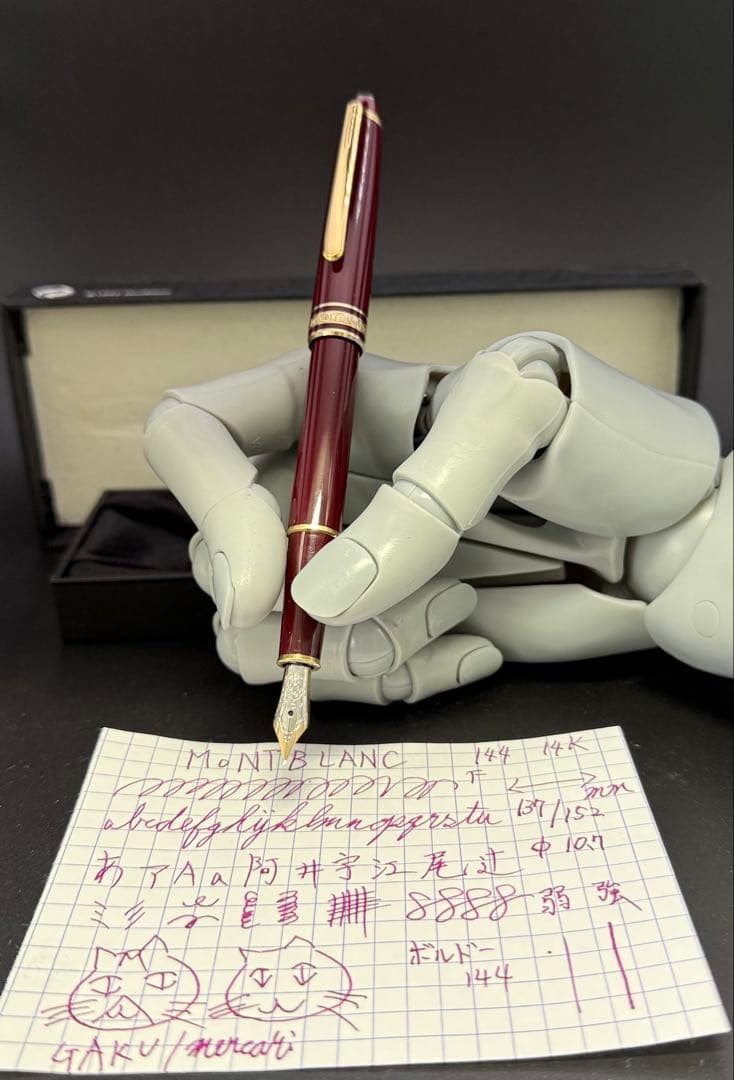 MoNTBLANC 144 14K
F mm
abcdefghijklmnopqrstu 137/152
φ 10.7
あ ア A a 阿 井 宇 江 尾 辻
8888 弱 強
ボルドー
144
GAKU/mercari